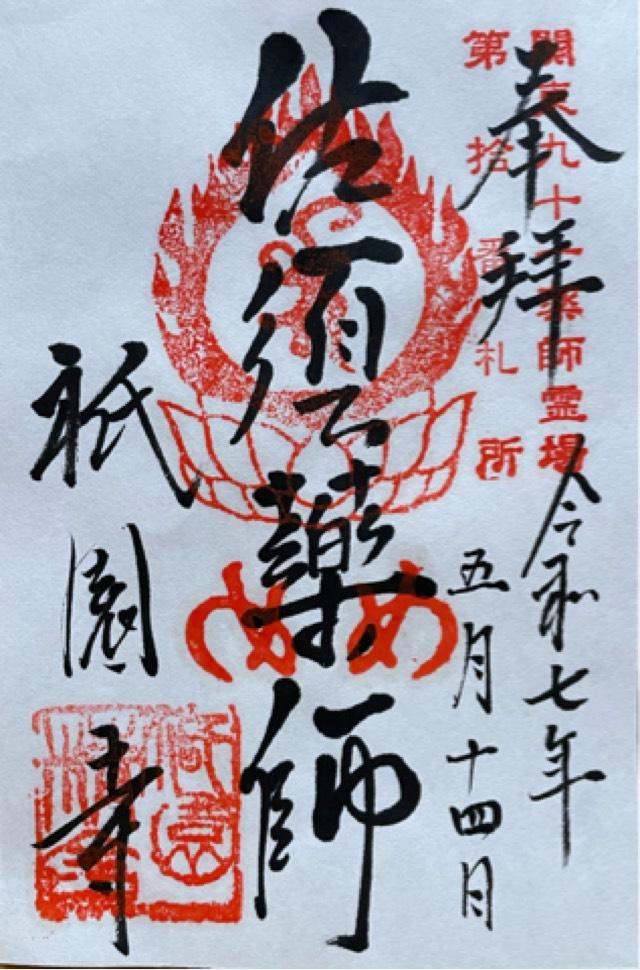 奉拝
関東九十一薬師霊場
第拾番札所
令和七年
五月十四日
佐須薬師
め め
祇園寺